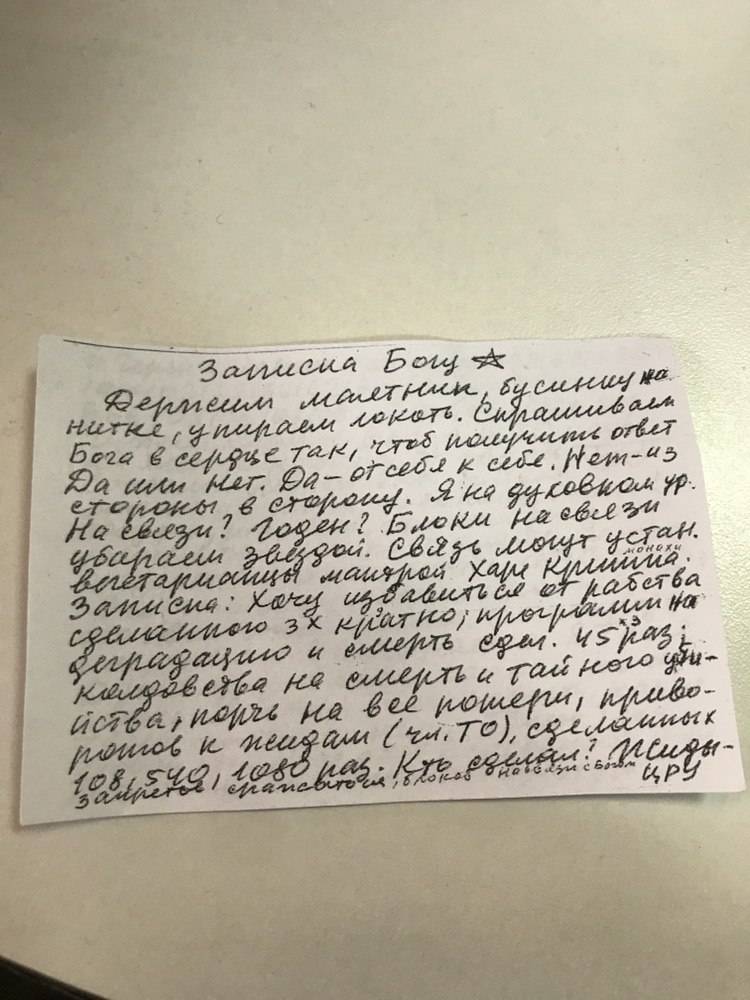 Записка Богу ☆
Держим маятник, бусинку на
нитке, упираем локоть. Спрашиваем
Бога в сердце так, чтоб получить ответ
Да или Нет. Да – от себя к себе. Нет – из
стороны в сторону. Я на духовном ур.
На связи? Годен? Блоки на связи
убираем звездой. Связь могут устан.
монахи
вегетарианцы мантрой Харе Кришна.
Записка: Хочу избавиться от рабства
сделанного 3х кратно; программ на
деградацию и смерть сдел. 45 раз;
колдовства на смерть и тайного уби-
йства, порч на все потери, приво-
ротов к жидам (чл. ТО), сделанных
108, 540, 1080 раз. Кто сделал? Жиды-
ЦРУ
Запретов сражаться, блоков на связи с Богом